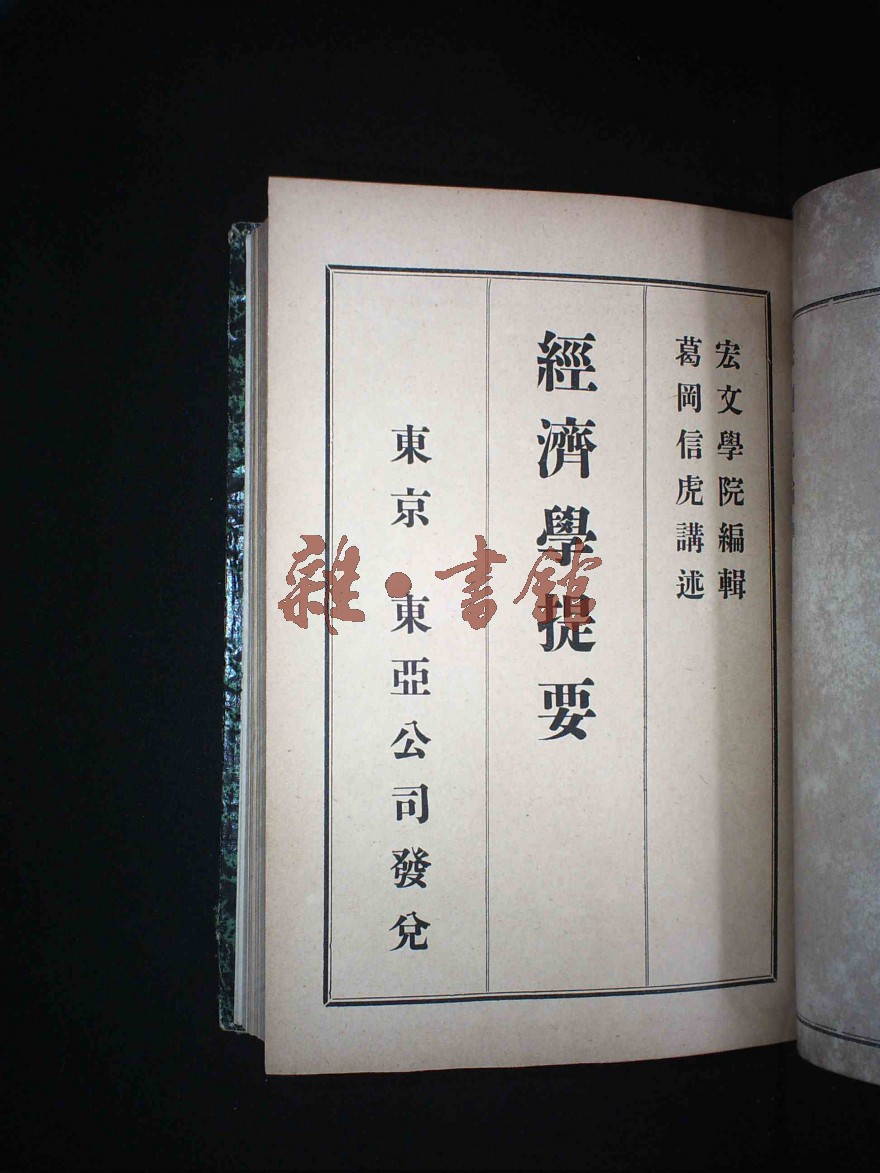 宏文學院編輯
葛岡信虎講述
經濟學提要
東京 東亞公司發兌
雜·書館